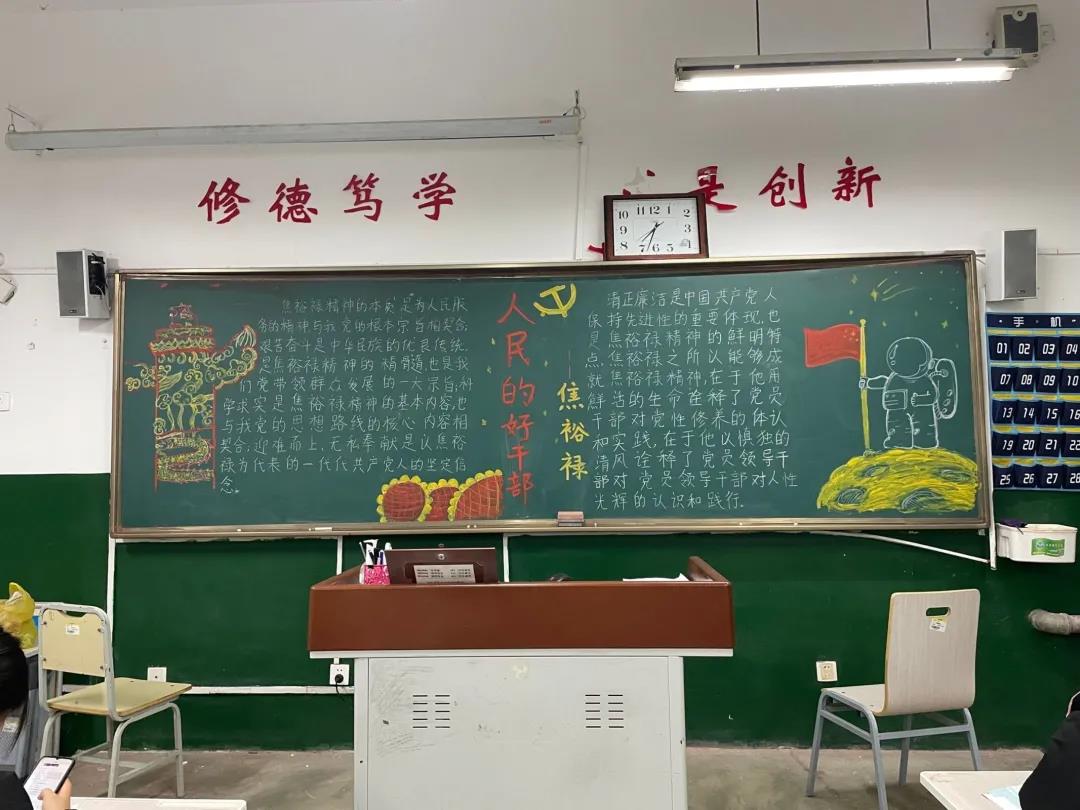 修德笃学
是创新
10 11 12 1 2
9 3
8 7 6 5 4
焦裕禄精神的本质是为人民服
务的精神与我党的根本宗旨相契合;
艰苦奋斗是中华民族的优良传统
是焦裕禄精神的精髓,也是我
们党带领群众发展的一大宗旨;科
学求实是焦裕禄精神的基本内容,也
与我党的思想路线的核心内容相
契合;迎难而上、无私奉献是以焦裕
禄为代表的一代代共产党人的坚定信
念。
人民的好干部
——焦裕禄
清正廉洁是中国共产党人
保持先进性的重要体现,也
是焦裕禄精神的鲜明特
点,焦裕禄之所以能够成
就焦裕禄精神,在于他用
鲜活的生命诠释了党员
干部对党性修养的体认
和实践,在于他以慎独的
清风诠释了党员领导干
部对党员领导干部对人性
光辉的认识和践行.
手机
01 02 03 04
07 08 09 10
13 14 15 16
19 20 21 22
25 26 27 28